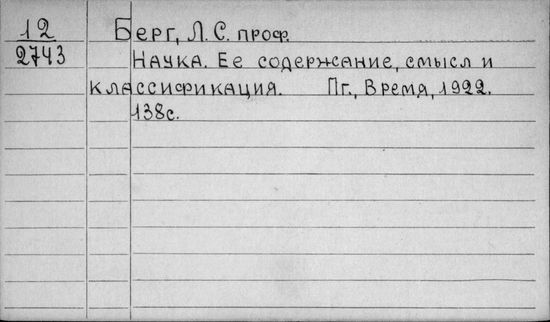 12
2743
Берг, Л.С. проф.
Наука. Ее содержание, смысл и
классификация. Пг., Время, 1922.
138с.